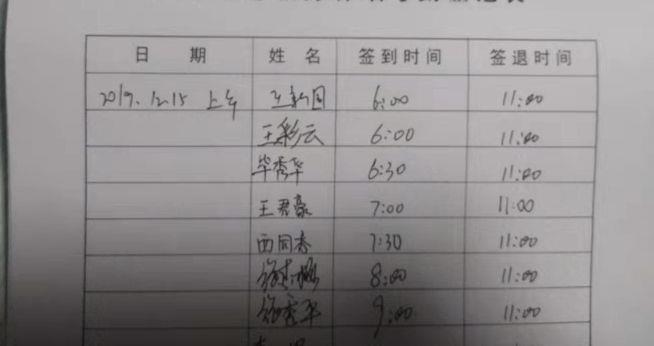 日 期 姓 名 签到时间 签退时间
2019.12.15 上午 王新国 6:00 11:00
王彩云 6:00 11:00
毕秀华 6:30 11:00
王君豪 7:00 11:00
西同春 7:30 11:00
8:00 11:00
徐秀平 9:00 11:00